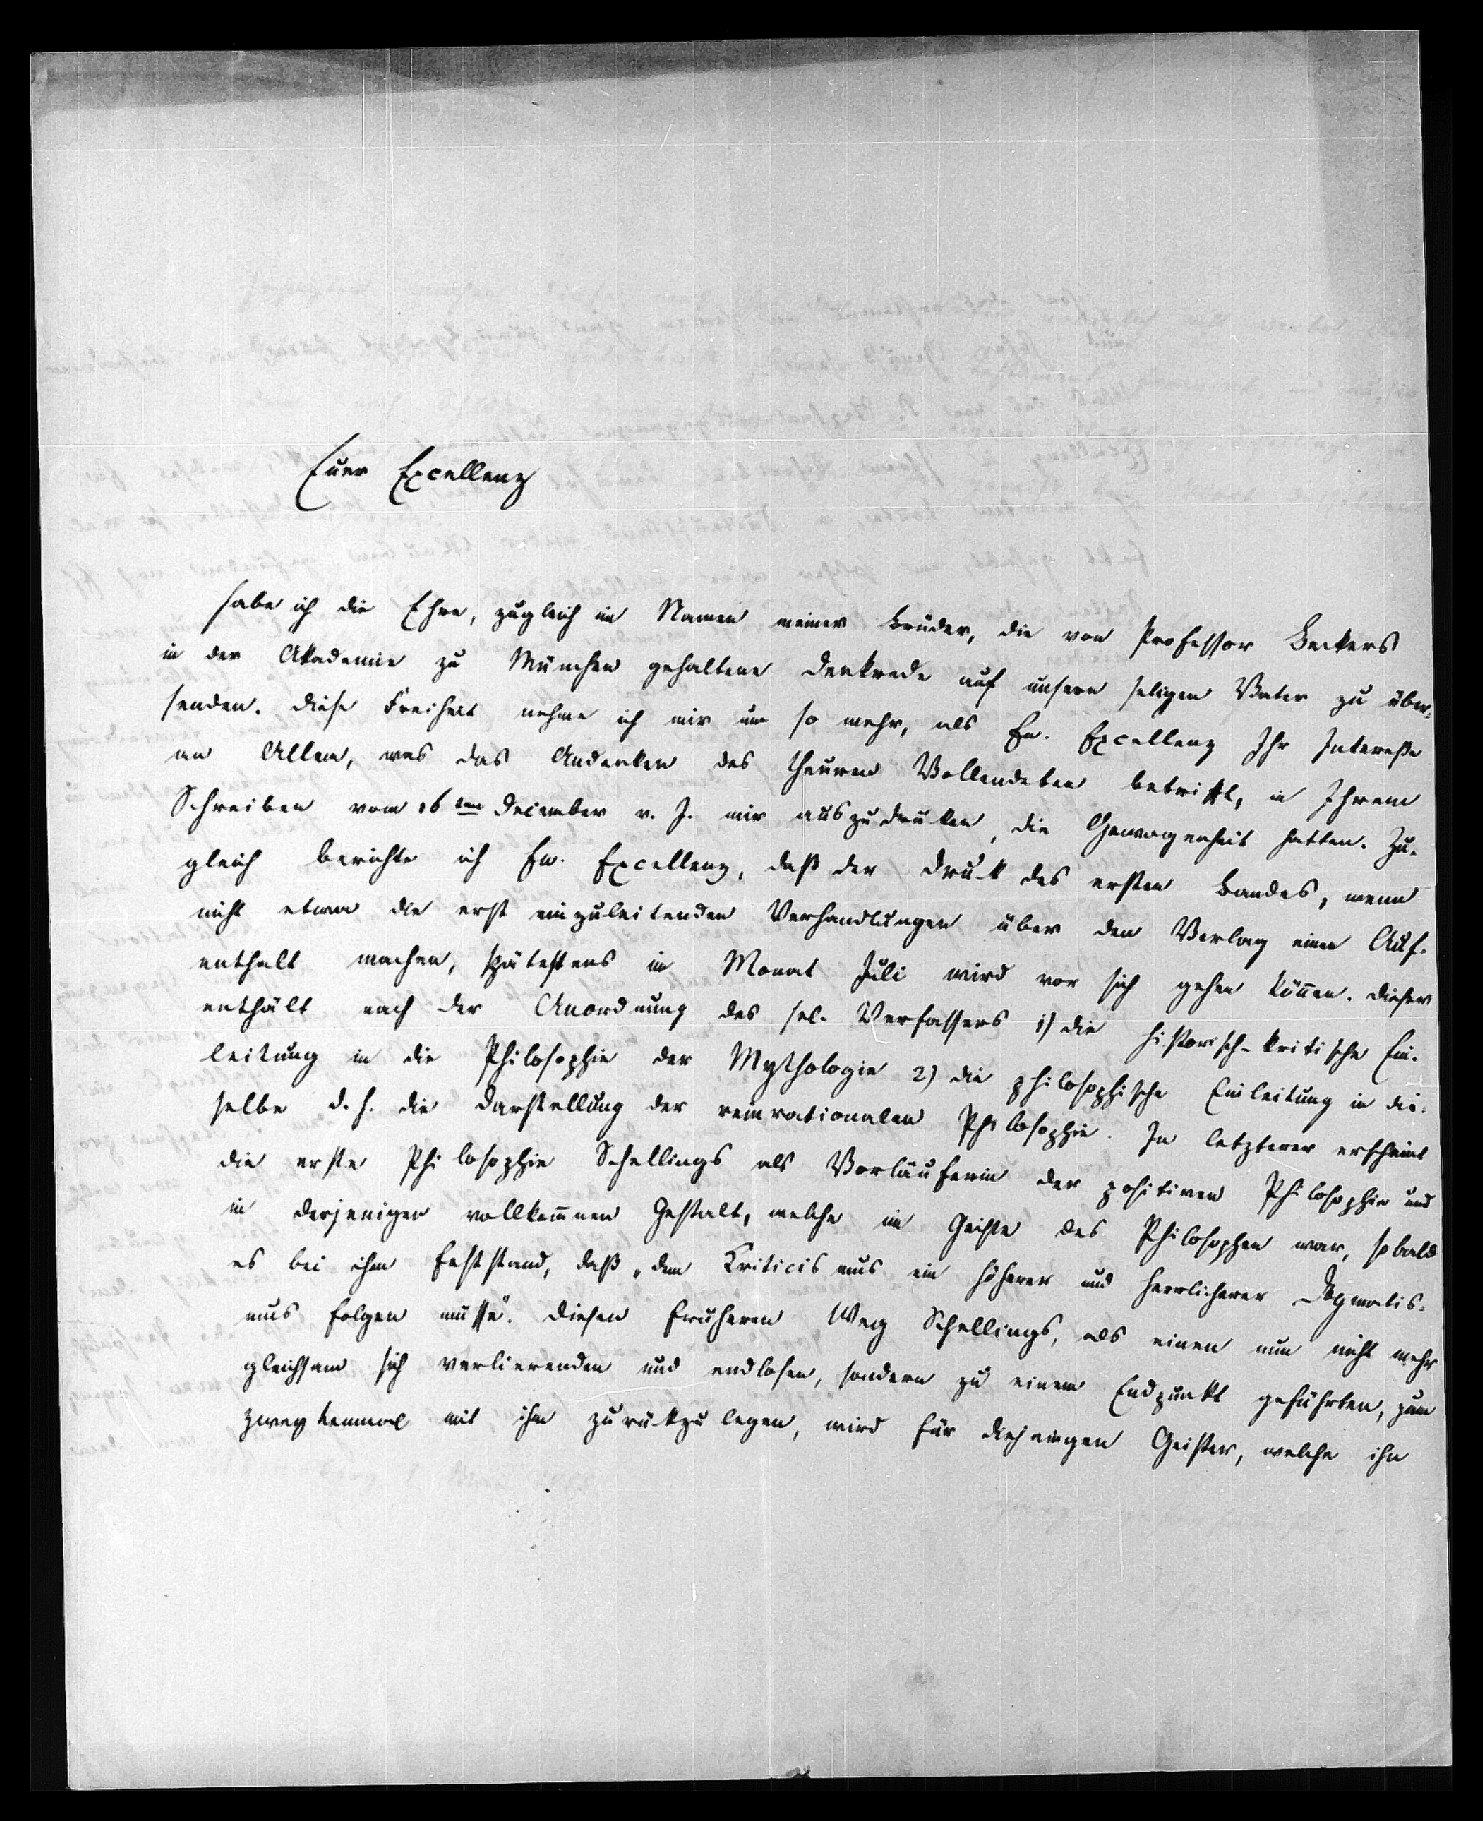 Euer Excellenz
habe ich die Ehre, zugleich im Namen meiner Brüder, die von Professor Beckers
in der Akademie zu München gehaltene Denkrede auf unsern seligen Vater zu über-
senden. Diese Freiheit nehme ich mir um so mehr, als Ew. Excellenz Ihr Interesse
an Allem, was das Andenken des theuren Vollendeten betrifft, in Ihrem
Schreiben vom 16ten December v. J. mir auszudrucken, die Gewogenheit hatten. Zu-
gleich berichte ich Ew. Excellenz, daß der Druck des ersten Bandes, wenn
nicht etwa die erst einzuleitenden Verhandlungen über den Verlag einen Auf-
enthalt machen, spätestens im Monat Juli wird vor sich gehen können. Dieser
enthält nach der Anordnung des sel. Verfassers 1) die historisch-kritische Ein-
leitung in die Philosophie der Mythologie 2) die philosophische Einleitung in die-
selbe d. h. die Darstellung der reinrationalen Philosophie. In letzterer erscheint
die erste Philosophie Schellings als Vorläuferin der positiven Philosophie und
in derjenigen vollkom̅nen Gestalt, welche im Geiste des Philosophen war, sobald
es bei ihm feststand, daß „dem Kriticismus ein höherer und herrlicherer Dogmatis-
mus folgen müsse“. Diesen früheren Weg Schellings, als einen nun nicht mehr
gleichsam sich verlierenden und endlosen, sondern zu einem Endpunkt geführten, zum
zweytenmal mit ihm zurückzulegen, wird für diejenigen Geister, welche ihn